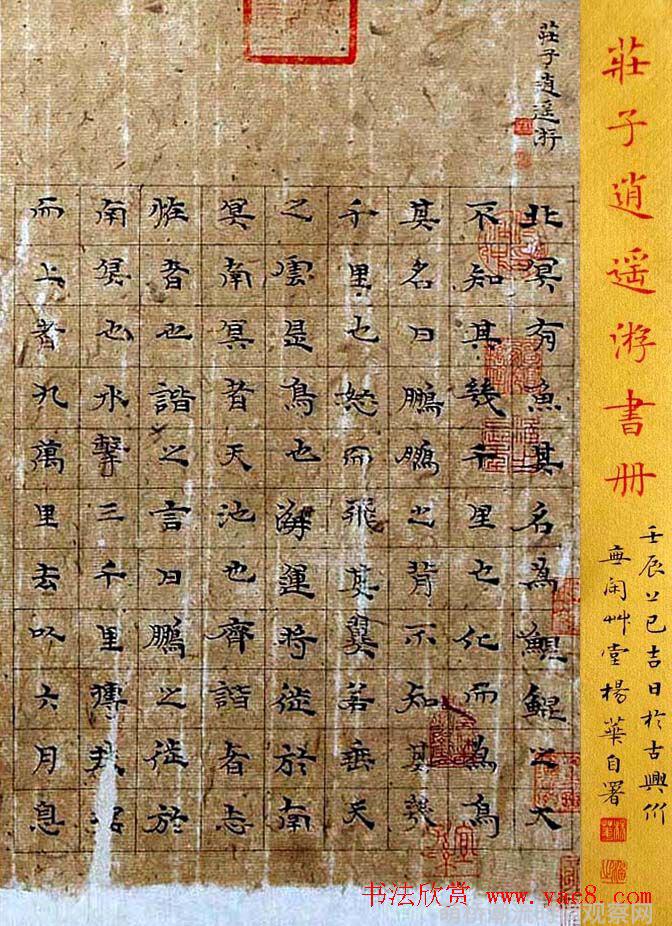 莊子逍遙游書冊
壬辰上巳吉日於古興州
無閑艸堂楊華自署
莊子逍遙游
北冥有魚其名為鯤鯤之大
不知其幾千里也化而為鳥
其名曰鵬鵬之背不知其幾
千里也怒而飛其翼若垂天
之雲是鳥也海運將徙於南
冥南冥者天池也齊諧者志
怪者也諧之言曰鵬之徙於
南冥也水擊三千里摶扶搖
而上者九萬里去以六月息
书法欣赏 www.yac8.com
观察网